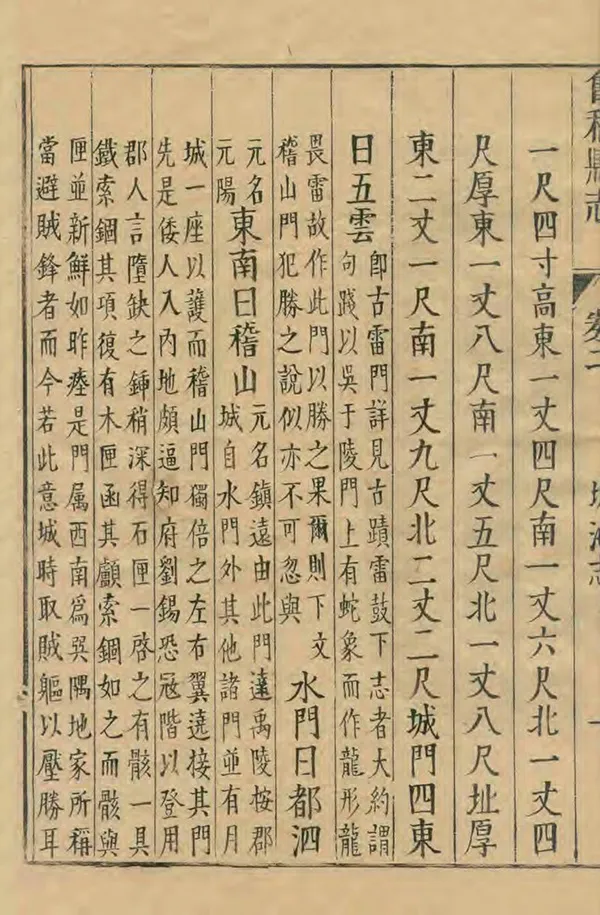 會稽縣志 卷二 城池志 一
一尺四寸高東一丈四尺南一丈六尺北一丈四
尺厚東一丈八尺南一丈五尺北一丈八尺址厚
東二丈一尺南一丈九尺北二丈二尺城門四東
曰五雲
卽古雷門詳見古蹟雷鼓下志者大約謂
句踐以吳于陵門上有蛇象而作龍形龍
畏雷故作此門以勝之果爾則下文
稽山門犯勝之說似亦不可忽與
水門曰都泗
元名
元陽
東南曰稽山
元名鎮遠由此門達禹陵按郡
城自水門外其他諸門並有月
城一座以護而稽山門獨倍之左右翼遶接其門
先是倭人入內地頗逼知府劉錫恐冦階以登用
郡人言隳缺之鍤稍深得石匣一啓之有骸一具
鐵索錮其項復有木匣函其顱索錮如之而骸與
匣並新鮮如昨瘞是門属西南爲巽隅地家所稱
當避賊鋒者而今若此意城時取賊軀以壓勝耳